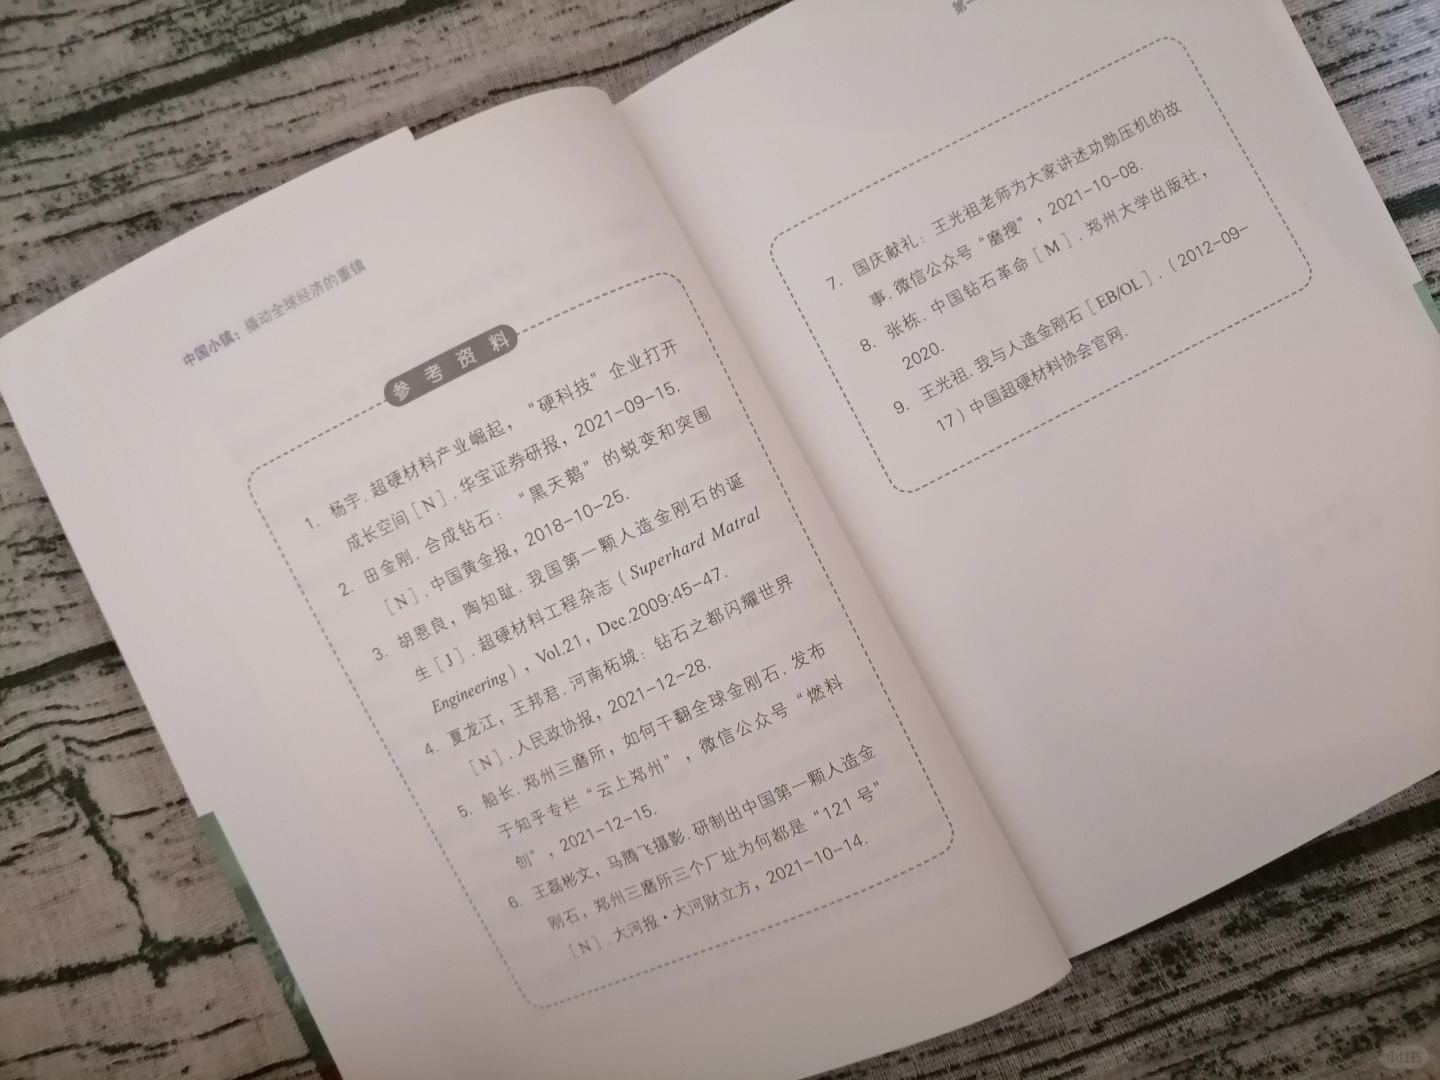 中国小镇：撬动全球经济的重镇
参考资料
1. 杨宇. 超硬材料产业崛起，“硬科技”企业打开
成长空间［N］. 华宝证券研报，2021-09-15.
2. 田金刚. 合成钻石：“黑天鹅”的蜕变和突围
［N］. 中国黄金报，2018-10-25.
3. 胡恩良，陶知耻. 我国第一颗人造金刚石的诞
生［J］. 超硬材料工程杂志（Superhard Matral
Engineering），Vol.21，Dec.2009:45-47.
4. 夏龙江，王邦君. 河南柘城：钻石之都闪耀世界
［N］. 人民政协报，2021-12-28.
5. 船长. 郑州三磨所，如何干翻全球金刚石. 发布
于知乎专栏“云上郑州”，微信公众号“燃料
创”，2021-12-15.
6. 王磊彬文，马腾飞摄影. 研制出中国第一颗人造金
刚石，郑州三磨所三个厂址为何都是“121 号”
［N］. 大河报·大河财立方，2021-10-14.
第一
7. 国庆献礼：王光祖老师为大家讲述功勋压机的故
事. 微信公众号“磨搜”，2021-10-08.
8. 张栋. 中国钻石革命［M］. 郑州大学出版社，
2020.
9. 王光祖. 我与人造金刚石［EB/OL］.（2012-09-
17）中国超硬材料协会官网.
小红书